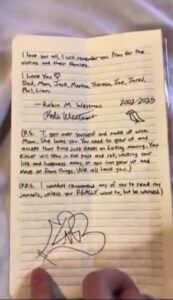 I love you all, I will remember you. Pray for the
victims and their families.
I Love You ♡
Dad, Mom, Jack, Martha, Theresa, Joe, Jared,
Phil, Liam
- Robin M. Westman 2002-2025
(P.S. I, get over yourself and make up with
Mom. She loves you. You need to grow up and
accept that time just keeps on moving. You
either will stew in the past and rot, wasting your
life and happiness away, or you can grow up and
move on from things. We all love you.)
(P.P.S. I wouldn't recommend any of you to read my
journals, unless you REALLY want to, but be warned.)